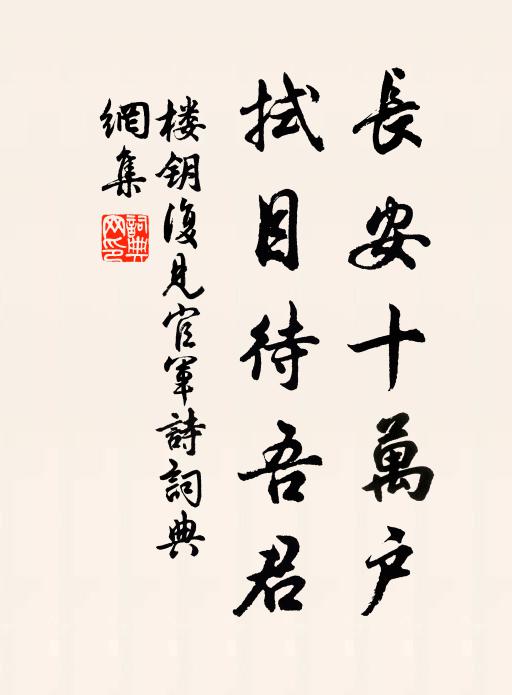 長安十萬户
拭目待吾君
楼钥復見官軍詩詞典
網集
詞典
网印